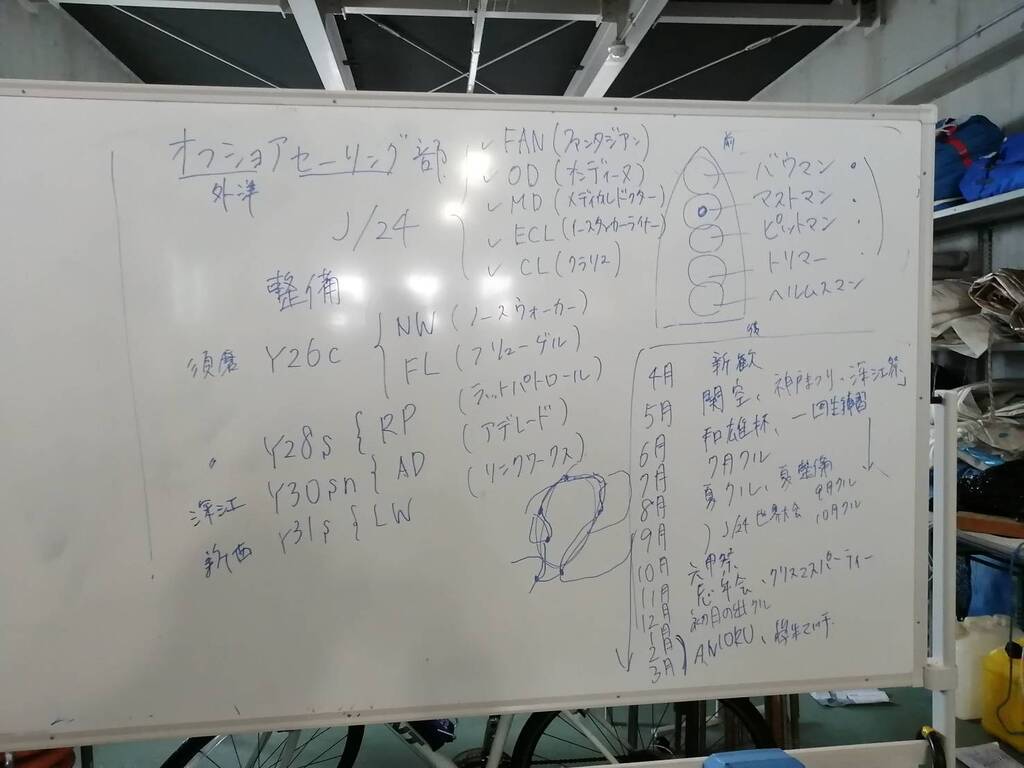 オフショアセーリング部
外洋
J/24
✓ FAN (ファンタジアン)
✓ OD (オンディーヌ)
✓ MD (メディカルドクター)
✓ ECL (イースタンカーライナー)
✓ CL (クラリス)
整備
須磨 Y26c { NW (ノースウォーカー)
FL (フリューゲル)
〃 Y28s { RP (ラットパトロール)
深江 Y30sn { AD (アデレード)
新西 Y31s { LW (リンクワークス)
前
バウマン
マストマン
ピットマン
トリマー
ヘルムスマン
後
4月 新歓
5月 関空、神戸まつり、深江祭
6月 和雄杯、一回生練習
7月 7月クル
8月 夏クル、夏整備
9月 J/24 世界大会 9月クル
10月 10月クル
11月 六甲祭
12月 忘年会、クリスマスパーティー
1月 初日の出クル
2月
3月 ANIORU、学生マッチ